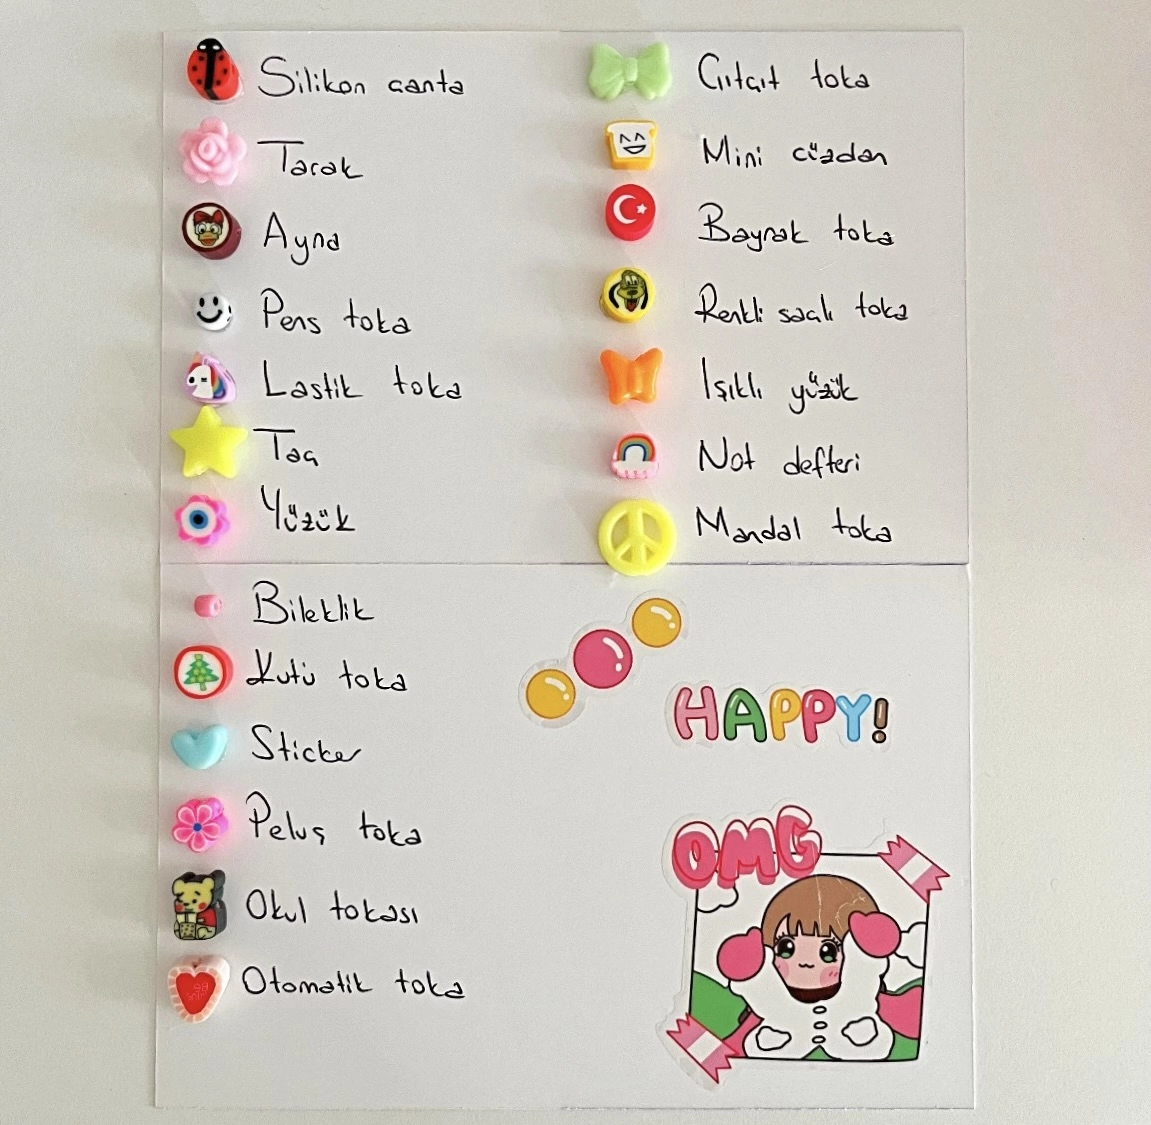 Silikon çanta
Tarak
Ayna
Pens toka
Lastik toka
Taç
Yüzük
Çıtçıt toka
Mini cüzdan
Bayrak toka
Renkli saçlı toka
Işıklı yüzük
Not defteri
Mandal toka
Bileklik
Kutu toka
Sticker
Peluş toka
Okul tokası
Otomatik toka
HAPPY!
OMG